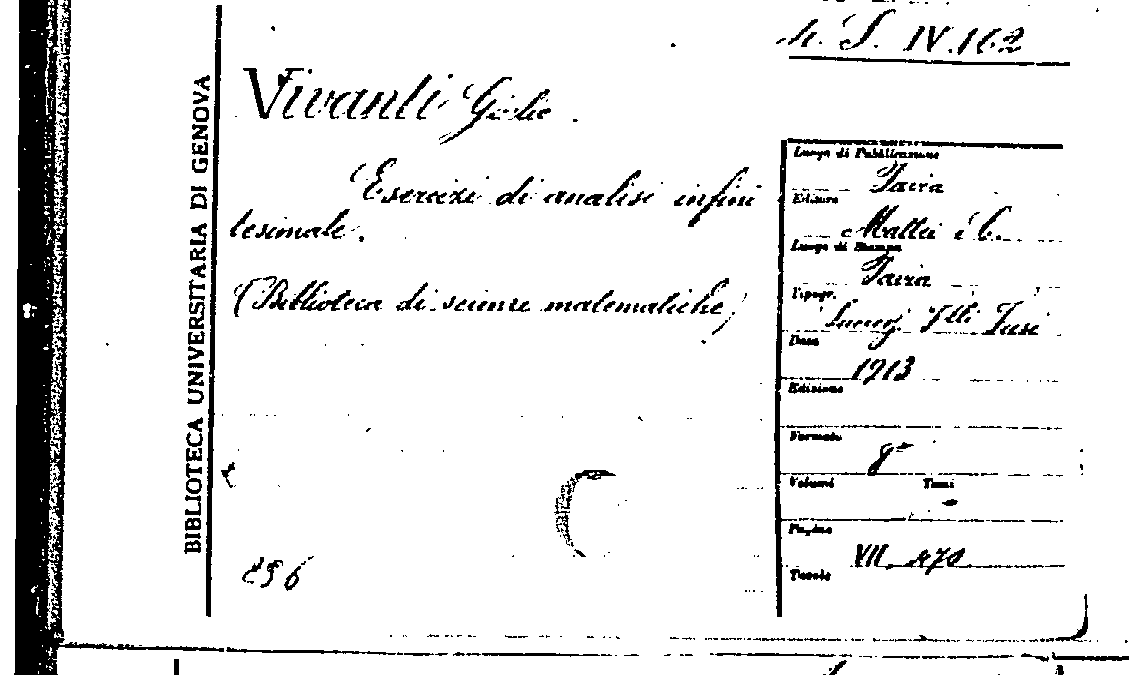 S. IV.162
BIBLIOTECA UNIVERSITARIA DI GENOVA
Vivanti Giulio.
Esercizi di analisi infini
tesimale.
(Biblioteca di scienze matematiche)
896
Luogo di Pubblicazione
Pavia
Editore
Mattei e C.
Luogo di Stampa
Pavia
Tipogr.
Succ. Flli Fusi
Data
1913
Edizione
Formato
8°
Volumi Tomi
-
Pagine
VII, 470
Tavole